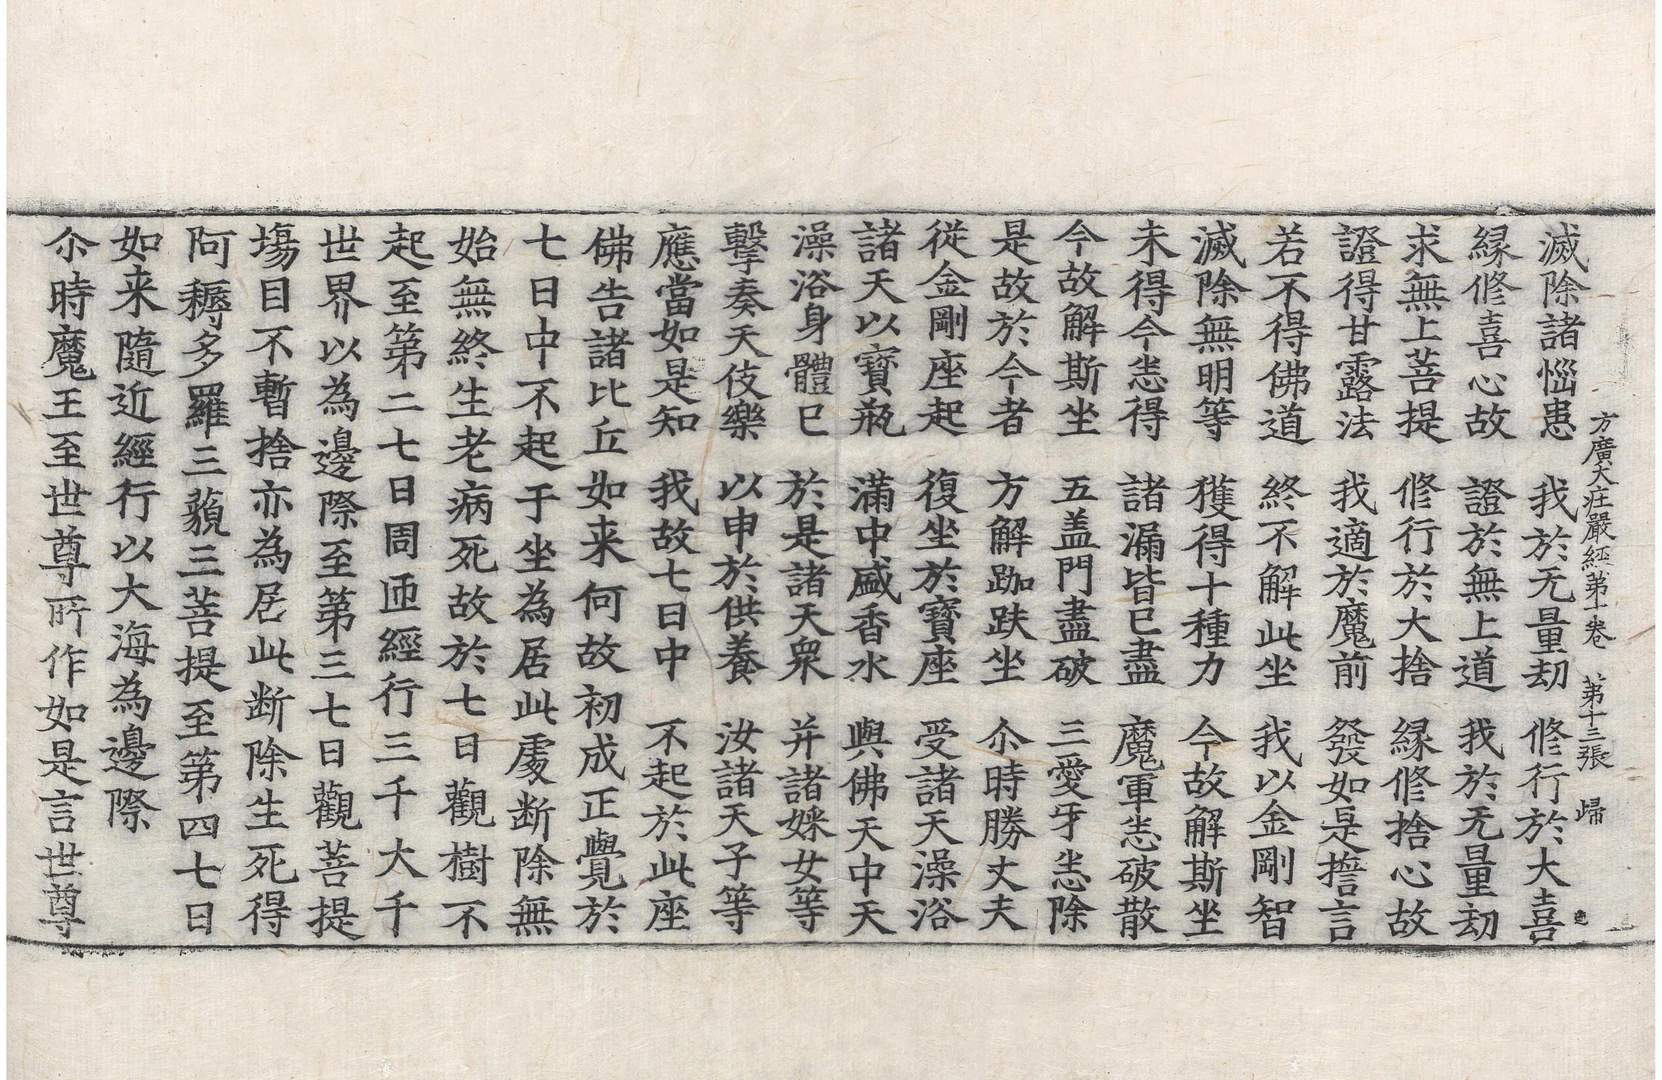 方廣大莊嚴經第十卷 第十三張 歸
滅除諸惱患 我於无量劫 修行於大喜
緣修喜心故 證於無上道 我於无量劫
求無上菩提 修行於大捨 緣修捨心故
證得甘露法 我適於魔前 發如是誓言
若不得佛道 終不解此坐 我以金剛智
滅除無明等 獲得十種力 今故解斯坐
未得今悉得 諸漏皆已盡 魔軍悉破散
今故解斯坐 五盖門盡破 三愛牙悉除
是故於今者 方解跏趺坐 尒時勝丈夫
從金剛座起 復坐於寶座 受諸天澡浴
諸天以寶瓶 滿中盛香水 與佛天中天
澡浴身體已 於是諸天眾 并諸婇女等
擊奏天伎樂 以申於供養 汝諸天子等
應當如是知 我故七日中 不起於此座
佛告諸比丘如来何故初成正覺於
七日中不起于坐為居此處断除無
始無終生老病死故於七日觀樹不
起至第二七日周匝經行三千大千
世界以為邊際至第三七日觀菩提
場目不暫捨亦為居此断除生死得
阿耨多羅三藐三菩提至第四七日
如来隨近經行以大海為邊際
尒時魔王至世尊所作如是言世尊